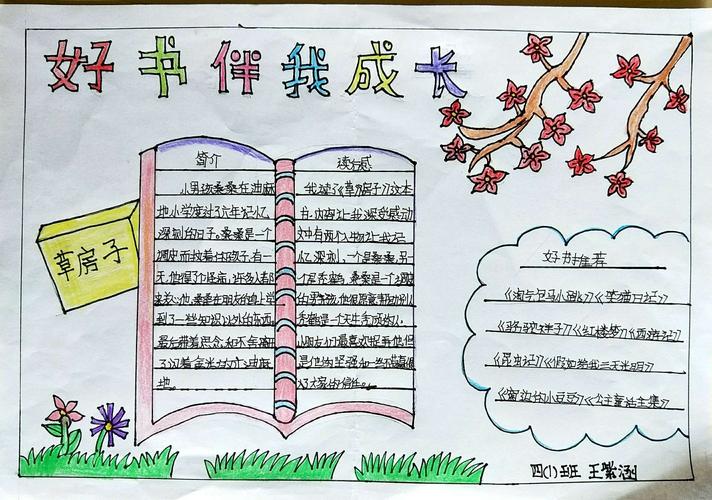 好书伴我成长
草房子
简介
小男孩桑桑在油麻
地小学度过了六年记忆
深刻的日子,桑桑是一个
调皮而
孩子,有一
天,他得了怪病,许多人都
来关心他,桑桑在朋友的身上学
到了一些知识以外的东西。
最后带着思念和不舍离开
了
油麻
地。
读后感
我读了《草房子》这本
书,内容让我深受感动
文中有两个人物让我记
忆深刻,一个是桑桑,另一
个是秃鹤,桑桑是一个调皮
的男孩,他很愿意帮助别人
秃鹤是一个天生秃顶的人,
朋友们最喜欢捉弄他,但
是他的坚强和
了大家的信任。
好书推荐
《淘气包马小跳》《笑猫日记》
《骆驼祥子》《红楼梦》《西游记》
《昆虫记》《假如给我三天光明》
《窗边的小豆豆》《公主童话全集》
四(1)班 王紫涵